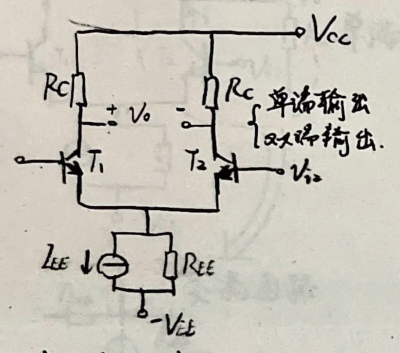 Vcc
Rc
+ Vo -
Rc
单端输出
双端输出.
T1
T2
Vi2
IEE
REE
-VEE